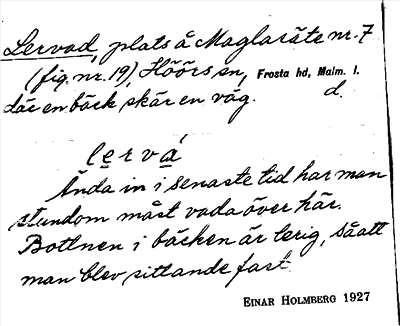 Lervad, plats å Maglasäte nr. 7
(fig. nr. 19), Höörs sn, Frosta hd, Malm. l.
där en bäck skär en väg. d.
lervá
Ända in i senaste tid har man
stundom måst vada över här.
Bottnen i bäcken är lerig, så att
man blev sittande fast.
EINAR HOLMBERG 1927